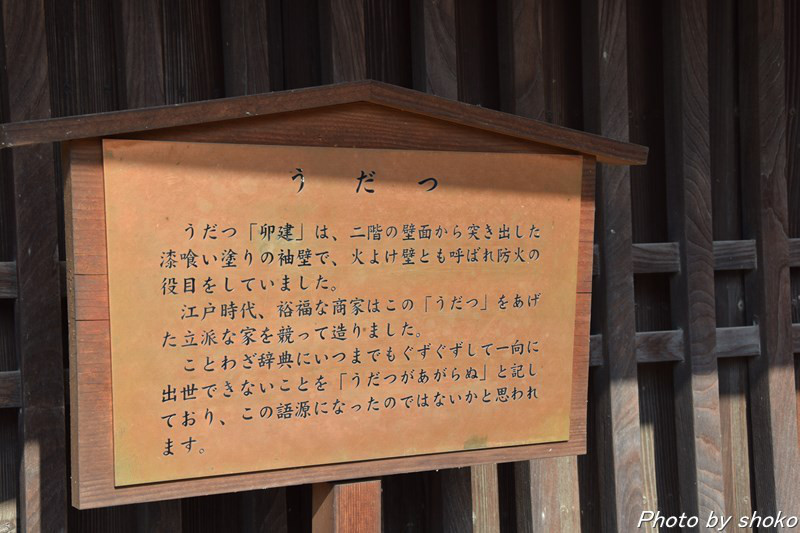 うだつ
うだつ「卯建」は、二階の壁面から突き出した
漆喰い塗りの袖壁で、火よけ壁とも呼ばれ防火の
役目をしていました。
江戸時代、裕福な商家はこの「うだつ」をあげ
た立派な家を競って造りました。
ことわざ辞典にいつまでもぐずぐずして一向に
出世できないことを「うだつがあがらぬ」と記し
ており、この語源になったのではないかと思われ
ます。
Photo by shoko